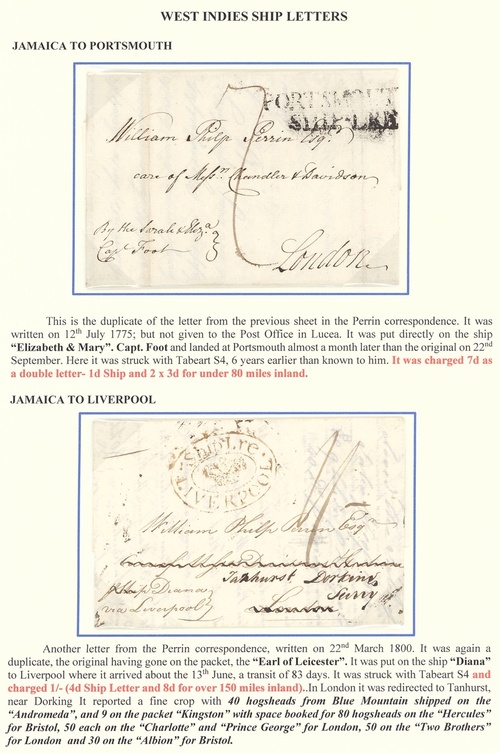 WEST INDIES SHIP LETTERS
JAMAICA TO PORTSMOUTH
PORTSMOUTH
SHIP-LRE
William Philp Perrin Esqr.
care of Messrs. Chandler & Davidson
By the Sarah & Eliza.
Capt Foot
London
This is the duplicate of the letter from the previous sheet in the Perrin correspondence. It was
written on 12th July 1775; but not given to the Post Office in Lucea. It was put directly on the ship
“Elizabeth & Mary”. Capt. Foot and landed at Portsmouth almost a month later than the original on 22nd
September. Here it was struck with Tabeart S4, 6 years earlier than known to him. It was charged 7d as
a double letter- 1d Ship and 2 x 3d for under 80 miles inland.
JAMAICA TO LIVERPOOL
Ship Lre
LIVERPOOL
William Philp Perrin Esqr
Tanhurst Dorking
Surry
Ship Diana
via Liverpool
London
Another letter from the Perrin correspondence, written on 22nd March 1800. It was again a
duplicate, the original having gone on the packet, the “Earl of Leicester”. It was put on the ship “Diana”
to Liverpool where it arrived about the 13th June, a transit of 83 days. It was struck with Tabeart S4 and
charged 1/- (4d Ship Letter and 8d for over 150 miles inland)..In London it was redirected to Tanhurst,
near Dorking It reported a fine crop with 40 hogsheads from Blue Mountain shipped on the
“Andromeda”, and 9 on the packet “Kingston” with space booked for 80 hogsheads on the “Hercules”
for Bristol, 50 each on the “Charlotte” and “Prince George” for London, 50 on the “Two Brothers”
for London and 30 on the “Albion” for Bristol.